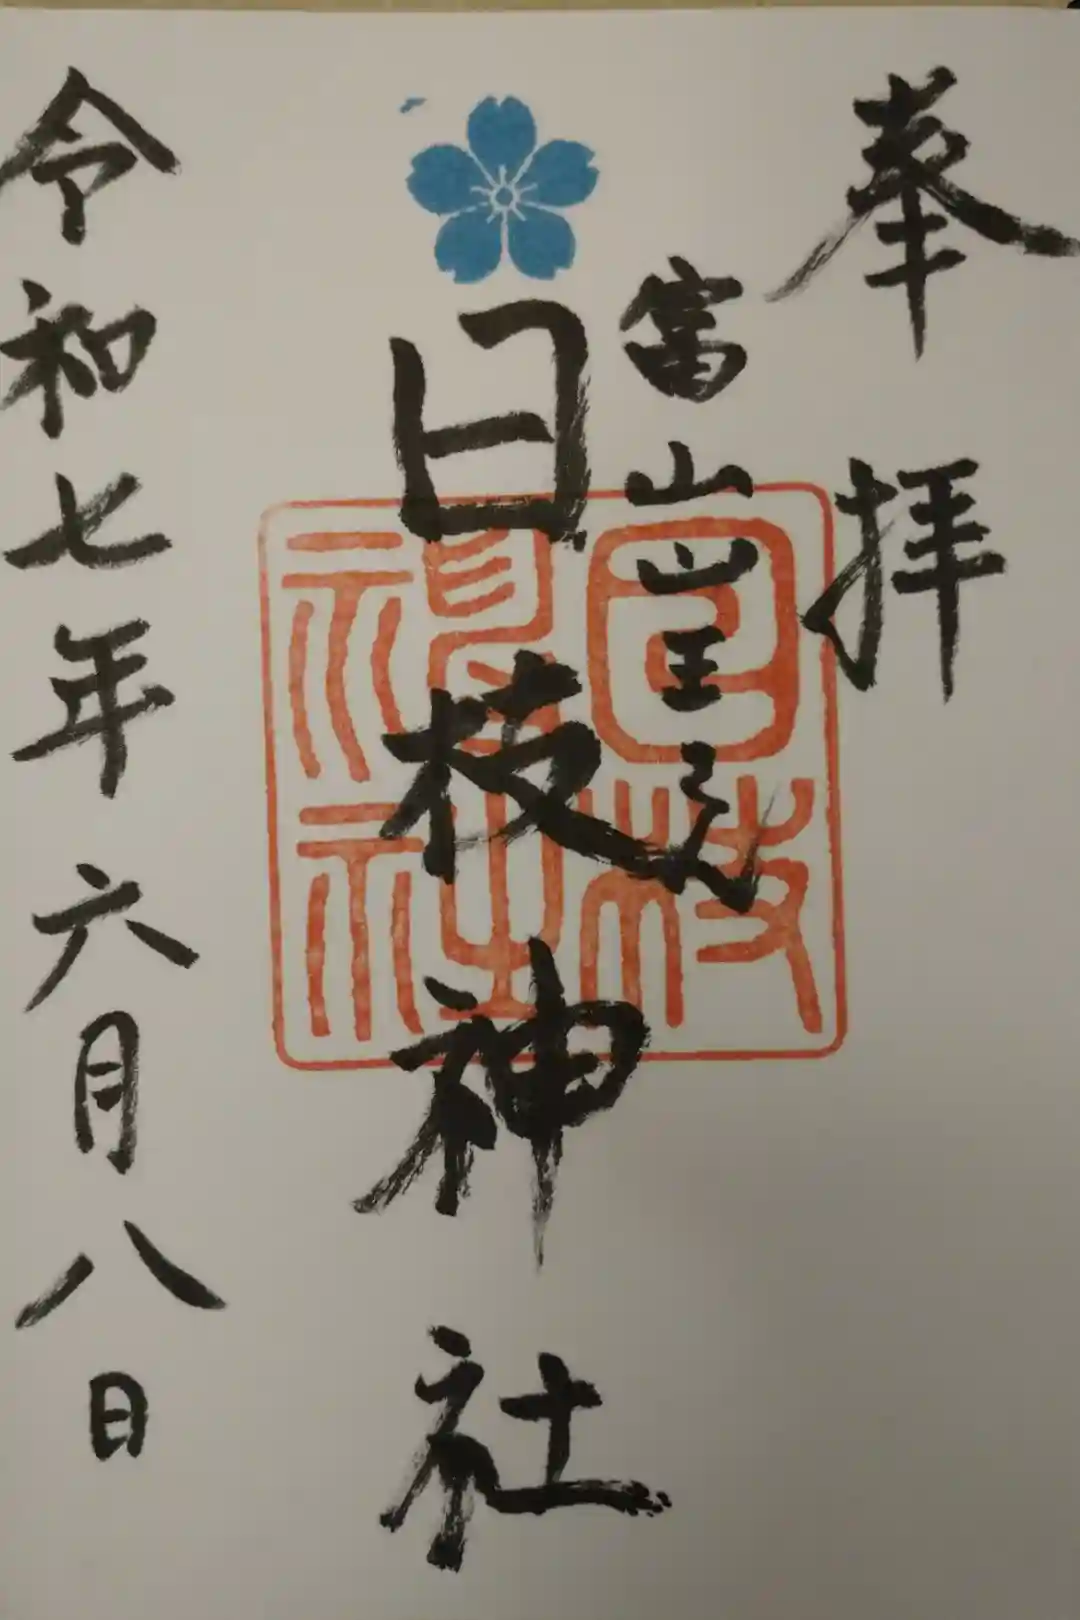 奉拝
富山山王之
日枝神社
日枝神社
令和七年六月八日